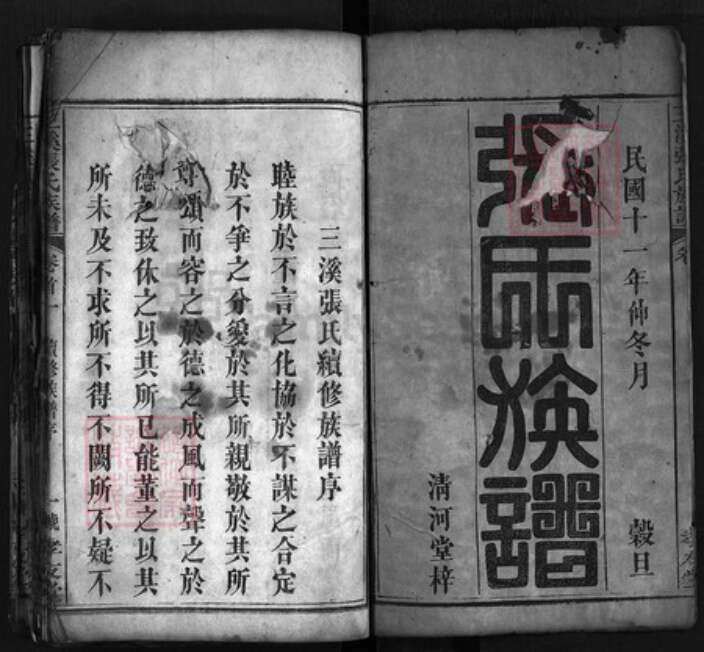 民國十一年仲冬月 穀旦
張氏族譜
清河堂梓
三溪張氏續修族譜序
睦族於不言之化協於不謀之合定
於不爭之分愛於其所親敬於其所
尊頌而容之於德之成風而聲之於
德之致休之以其所已能董之以其
所未及不求所不得不闕所不疑不
張氏族譜 卷首